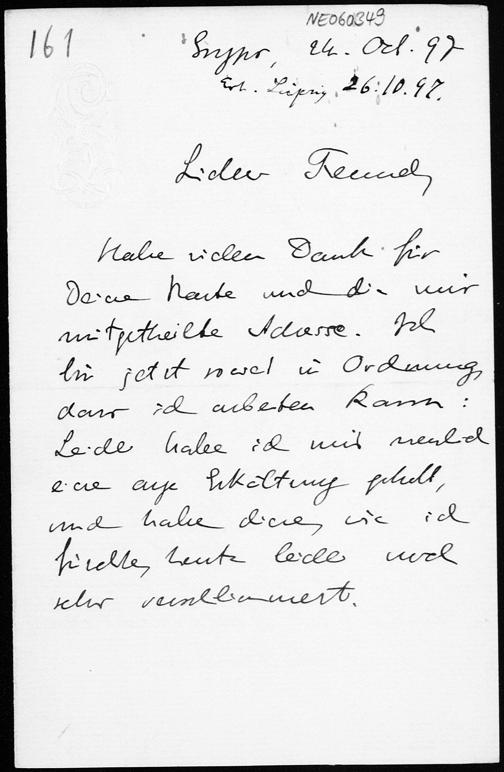 NE060349
161
Gryps, 24. Oct. 97
Erh. Leipzig 26.10.97.
Lieber Freund,
Habe vielen Dank für
Deine Karte und die mir
mitgetheilte Adresse. Ich
bin jetzt soweit in Ordnung,
dass ich arbeiten kann:
Leider habe ich mir neulich
eine arge Erkältung geholt,
und habe diese, wie ich
fürchte, heute leider noch
sehr verschlimmert.